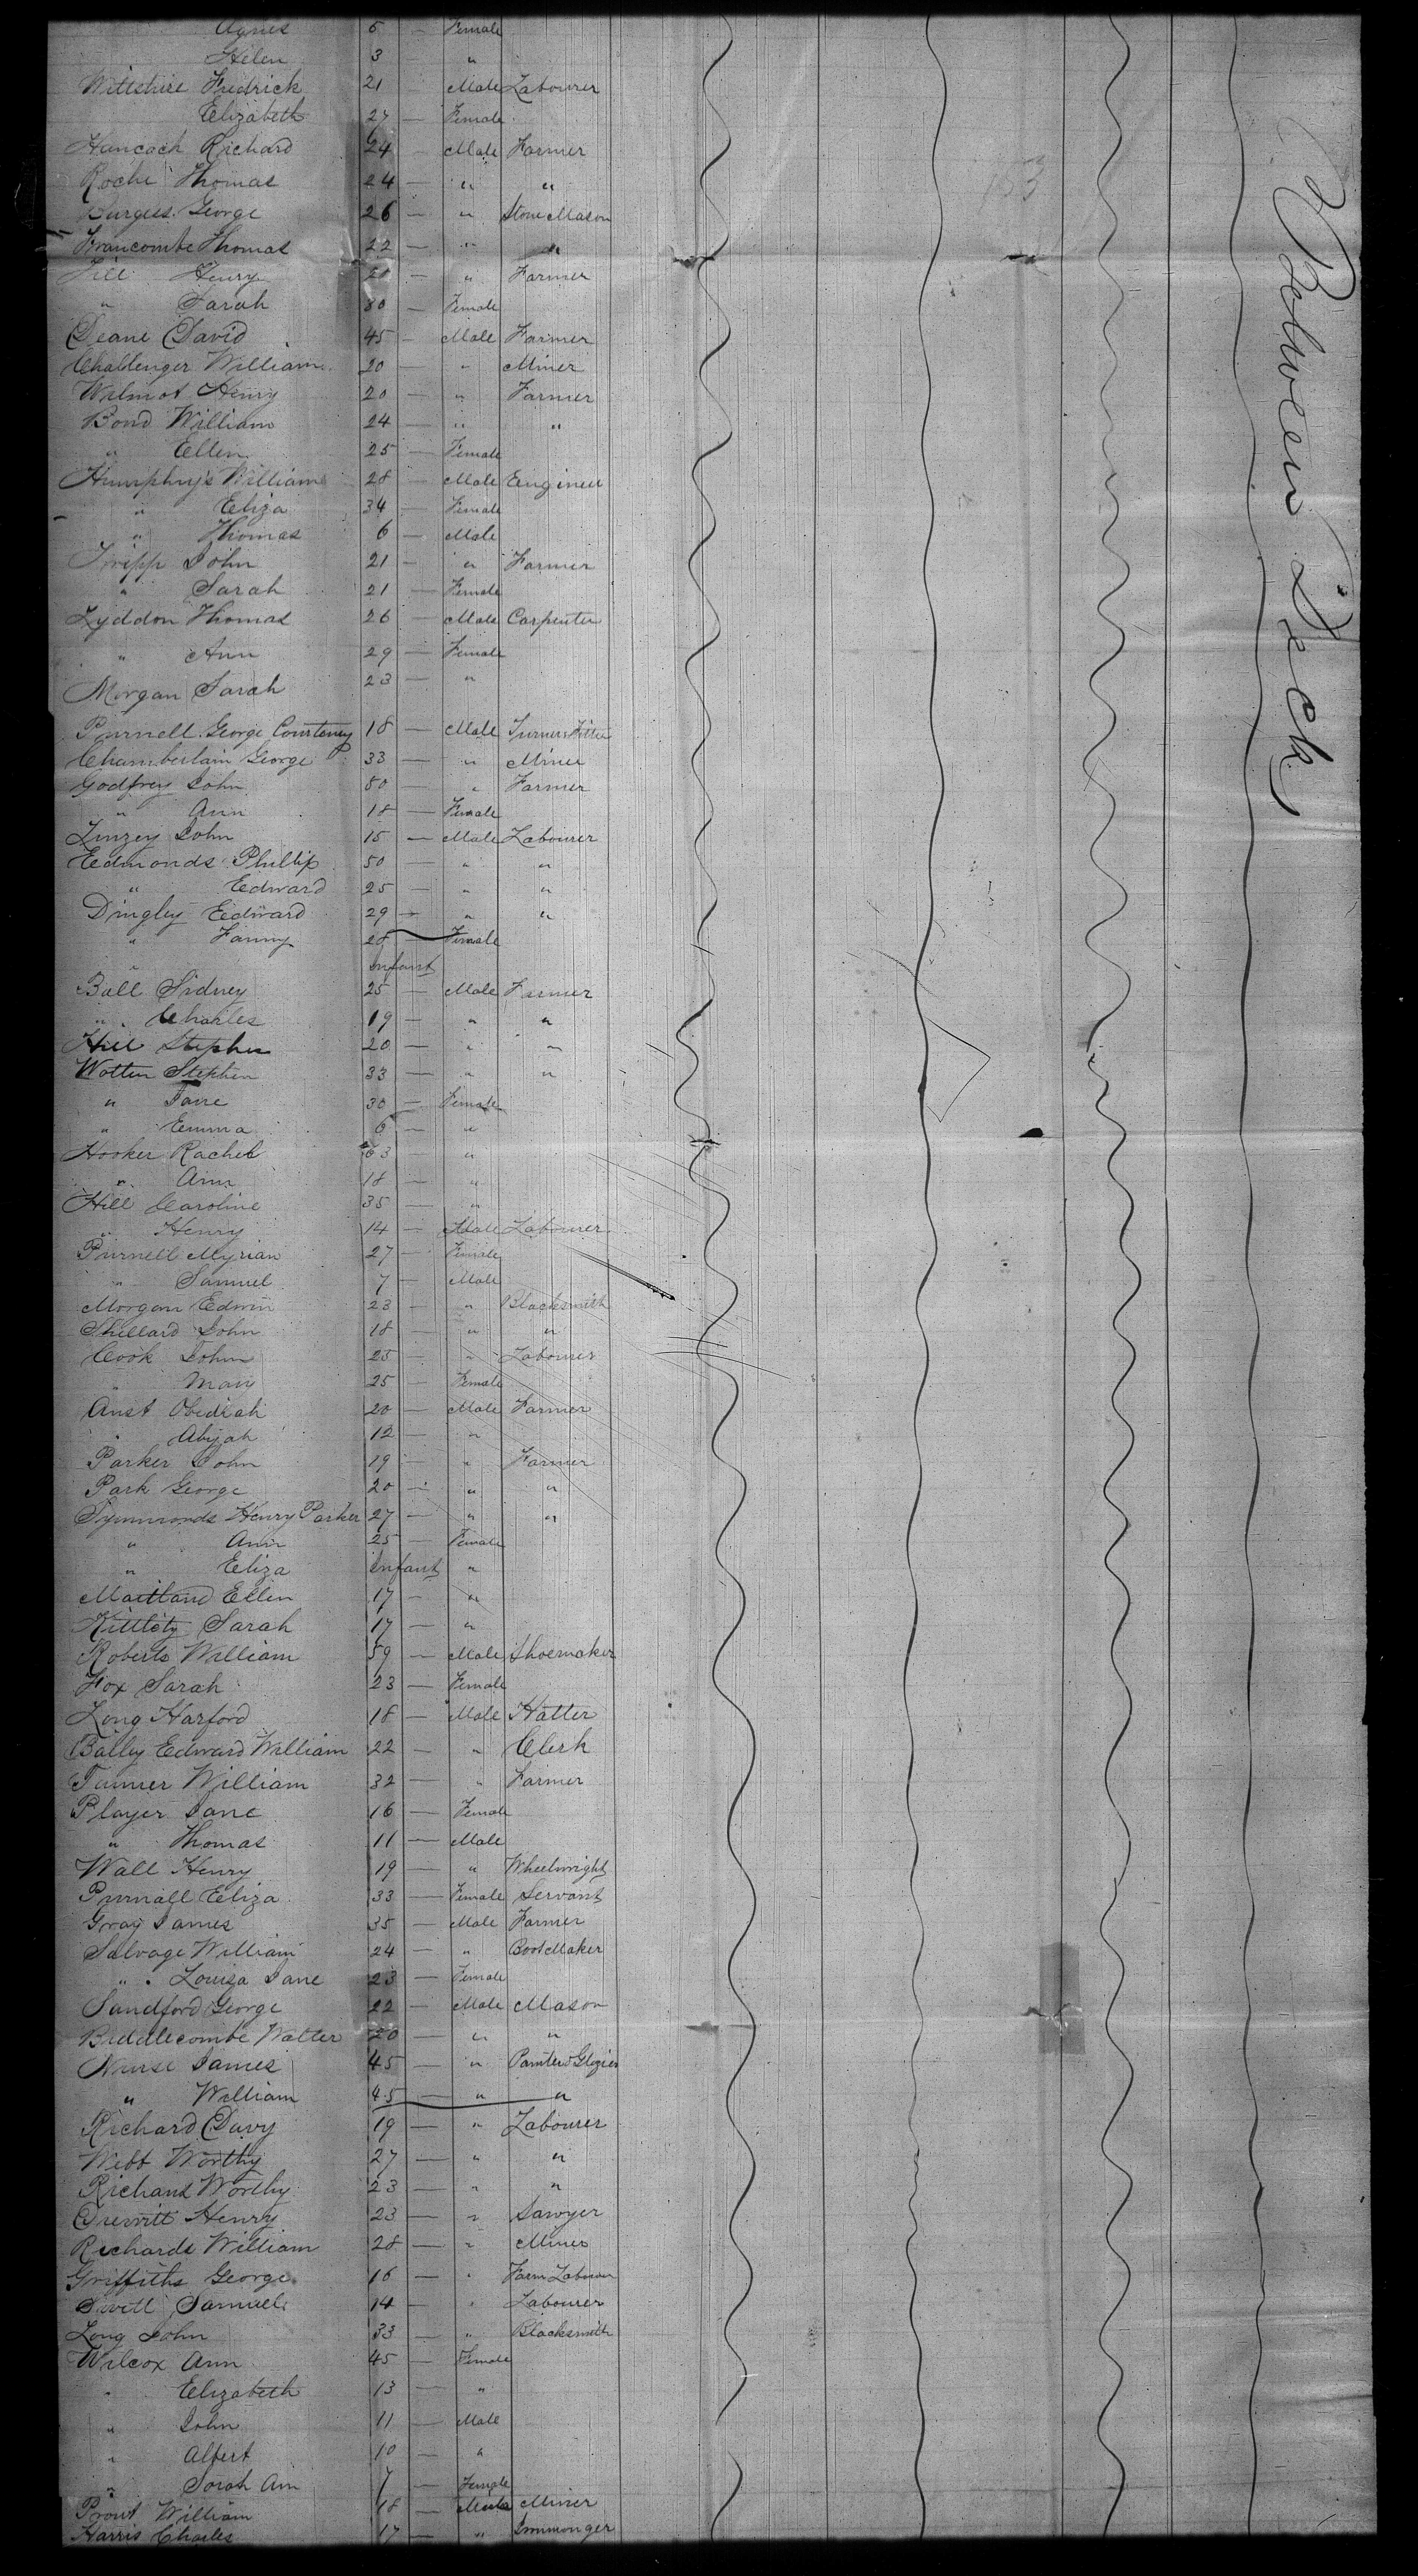 Agnes 5 — Female
Helen 3 "
Wiltshire Fredrick 21 — Male Labourer
Elizabeth 27 — Female
Hancock Richard 24 — Male Farmer
Roche Thomas 24 — " "
Burgess George 26 — " Stone Mason
Francombe Thomas 22 — " "
Henry 21 — " Farmer
" Sarah 30 — Female
Deane David 45 — Male Farmer
Challenger William 20 — " Miner
Walmot Henry 20 — " Farmer
Bond William 24 — " "
" Ellen 25 — Female
Humphrys William 28 — Male Engineer
" Eliza 34 — Female
" Thomas 6 — Male
Tripp John 21 — " Farmer
" Sarah 21 — Female
Lyddon Thomas 26 — Male Carpenter
" Ann 29 — Female
Morgan Sarah 23 — "
Purnell George Courteney 18 — Male Turner & Fitter
Chamberlain George 33 — " Miner
Godfrey John 50 — " Farmer
" Ann 18 — Female
Linzey John 15 — Male Labourer
Edmonds Phillip 50 — " "
" Edward 25 — " "
Dingley Edward 29 — " "
" Fanny 28 — Female
" Infant
Ball Sidney 25 — Male Farmer
" Charles 19 — " "
Hill Stephen 20 — " "
Wotten Stephen 33 — " "
" Jane 30 — Female
" Emma 6 — "
Hooker Rachel 63 — "
" Ann 18 — "
Hill Caroline 35 — "
" Henry 14 — Male Labourer
Purnell Myrian 27 — Female
" Samuel 7 — Male
Morgan Edwin 23 — " Blacksmith
Shellard John 18 — " "
Cook John 25 — " Labourer
" Mary 25 — Female
Anst Obediah 20 — Male Farmer
" Abijah 12 — "
Parker John 19 — " Farmer
Park George 20 — " "
Symmonds Henry Parker 27 — " "
" Ann 25 — Female
" Eliza Infant "
Maitland Ellen 17 — "
Sarah 17 — "
Roberts William 59 — Male Shoemaker
Fox Sarah 23 — Female
Long Harford 18 — Male Hatter
Bally Edward William 22 — " Clerk
Tanner William 32 — " Farmer
Player Jane 16 — Female
" Thomas 11 — Male
Wall Henry 19 — " Wheelwright
Purnall Eliza 33 — Female Servant
Gray James 35 — Male Farmer
Salvage William 24 — " Boot Maker
" Louisa Jane 23 — Female
Sandford George 22 — Male Mason
Biddlecombe Walter 20 — " "
Nurse James 45 — " Painter & Glazier
" William 45 — " "
Richard Davy 19 — " Labourer
Webb Worthy 27 — " "
Richard Worthy 23 — " "
Henry 23 — " Sawyer
Richards William 28 — " Miner
Griffiths George 16 — " Farm Labourer
Samuel 14 — " Labourer
Long John 33 — " Blacksmith
Wilcox Ann 45 — Female
" Elizabeth 13 — "
" John 11 — Male
" Albert 10 — "
" Sarah Ann 7 — Female
Prout William 18 — Male Miner
Harris Charles 17 — " Ironmonger
Between Deck
153